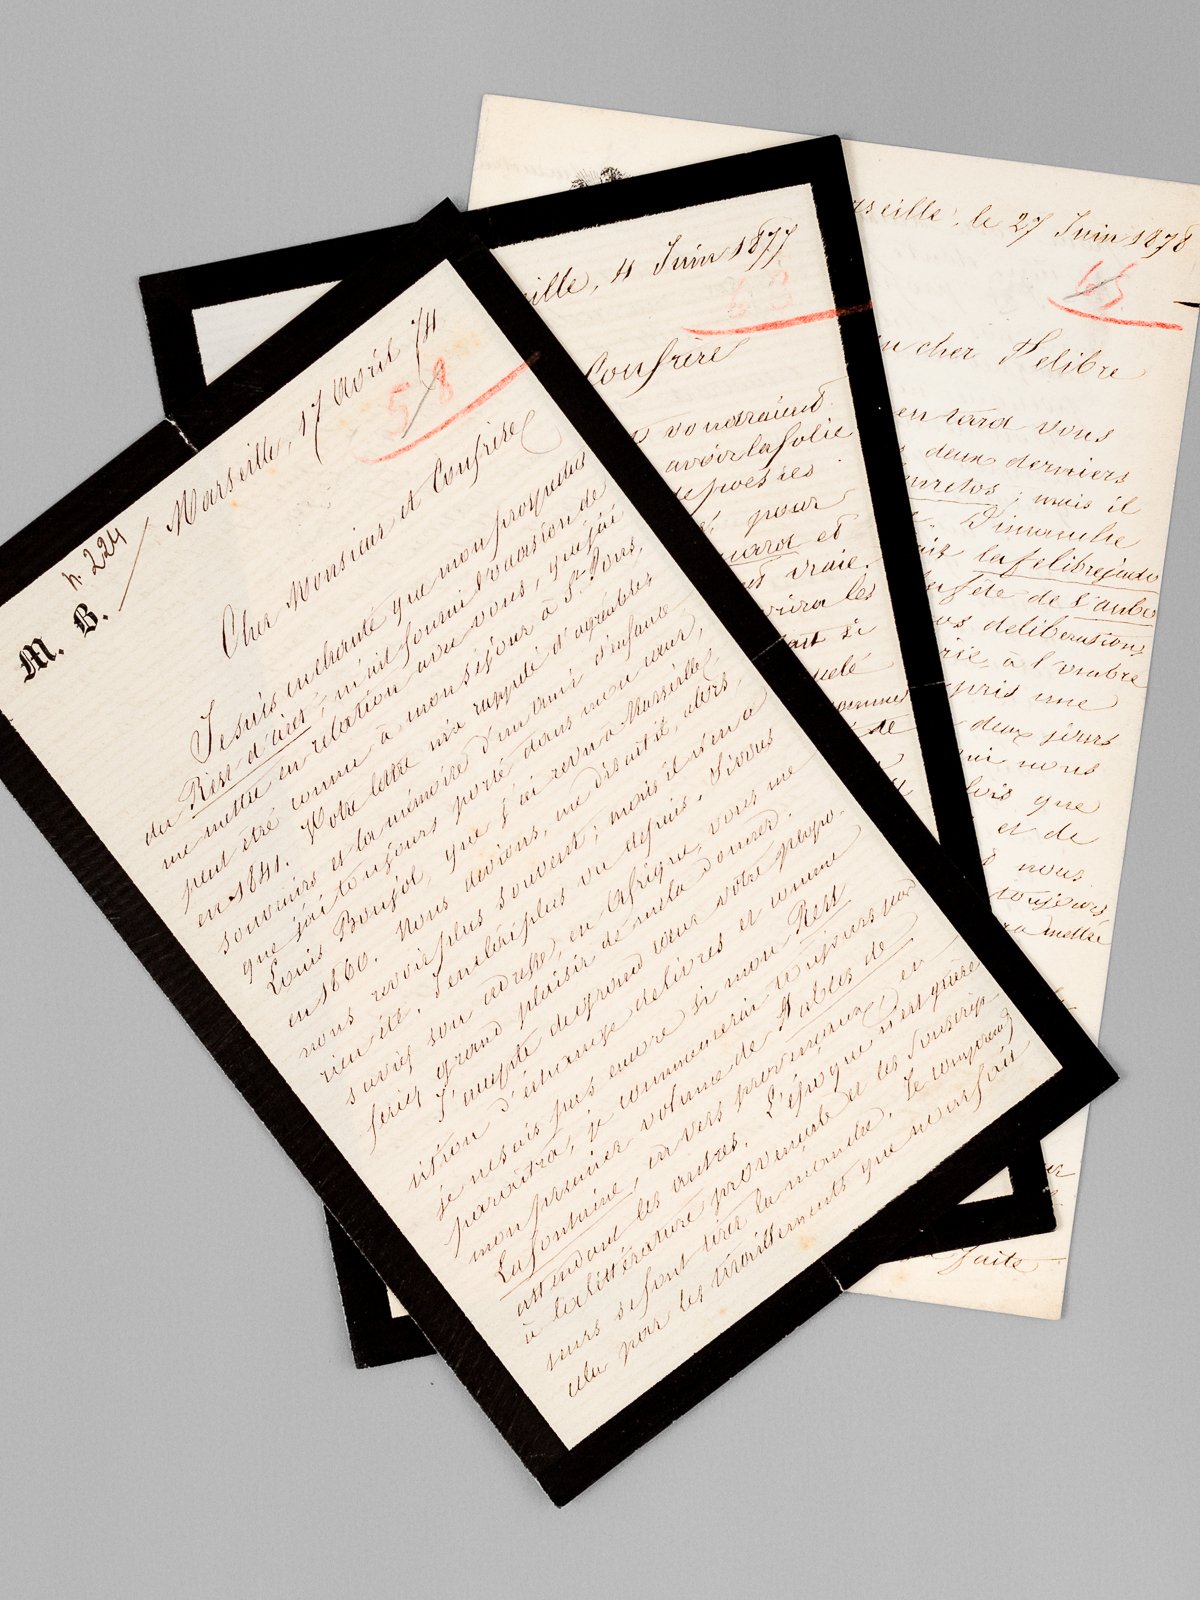 n. 224
M. B.
Marseille, 17 Avril 74
58
Cher Monsieur et Confrère
Je suis enchanté que mon prospectus
du Rèst d'aiet, m'ait fourni l'occasion de
me mettre en relation avec vous, que j'ai
peut être connu à mon séjour à St Pons,
en 1841. Votre lettre m'a rappelé d'agréables
souvenirs et la mémoire d'un ami d'enfance
que j'ai toujours porté dans mon cœur,
Louis Boujol, que j'ai revu à Marseille
en 1860. Nous devions, me disait-il, alors,
nous revoir plus souvent; mais il n'en a
rien été. Je ne l'ai plus vu depuis. Si vous
saviez son adresse, en Afrique, vous me
feriez grand plaisir de me la donner.
J'accepte de grand cœur votre propo-
sition d'échange de livres et comme
je ne sais pas encore si mon Rest
paraîtra, je commencerai toujours par
mon premier volume de Fables de
La Fontaine, en vers provençaux, en
attendant les autres. L'époque n'est guère
à la littérature provençale et les souscrip-
teurs se font tirer la manche. Je comprends
cela par les tiraillements que nous font
ille, 4 Juin 1877
63
Confrère
voudraient
avoir la folie
de poësies
pour
et
vraie.
les
si
de
rseille, le 27 Juin 1878
65
n cher Felibre
en tard vous
deux derniers
; mais il
Dimanche
la felibrejado
fête de l'aube
os délibérations
rie, à l'ombre
pris une
deux jours
nous
fois que
et de
nous
toujours,
mettre
faits